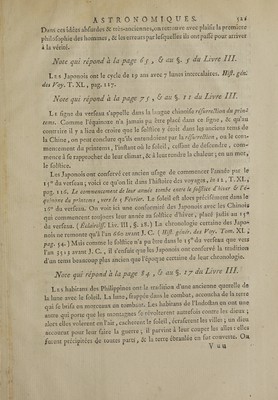 ASTRONOMIQUES. 521
Dans ces idées absurdes & très-anciennes, on retrouve avec plaisir la première
philosophie des hommes, & les erreurs par lesquelles ils ont passé pour arriver
à la vérité.
Note qui répond à la page 65, & au §. 5 du Livre III.
Les Japonois ont le cycle de 19 ans avec 7 lunes intercalaires. Hist. gén.
des Voy. T. XL, pag. 127.
Note qui répond à la page 75, & au §. 11 du Livre III.
Le signe du verseau s'appelle dans la langue chinoise résurrection du prin-
tems. Comme l'équinoxe n'a jamais pu être placé dans ce signe, & qu'au
contraire il y a lieu de croire que le solstice y étoit dans les anciens tems de
la Chine, on peut conclure qu'ils entendoient par la résurrection, ou le com-
mencement du printems, l'instant où le soleil, cessant de descendre, com-
mence à se rapprocher de leur climat, & à leur rendre la chaleur; en un mot,
le solstice.
Les Japonois ont conservé cet ancien usage de commencer l'année par le
15° du verseau; voici ce qu'on lit dans l'histoire des voyages, in 12, T. XL,
pag. 126. Le commencement de leur année tombe entre le solstice d'hiver & l'é-
quinoxe du printems, vers le 5 Février. Le soleil est alors précisément dans le
15° du verseau. On voit ici une conformité des Japonois avec les Chinois
qui commencent toujours leur année au solstice d'hiver, placé jadis au 15°
du verseau. (Eclaircif. Liv. III, §. 28.) La chronologie certaine des Japo-
nois ne remonte qu'à l'an 660 avant J. C. (Hist. génér. des Voy. Tom. XL;
pag. 54.) Mais comme le solstice n'a pu être dans le 15° du verseau que vers
l'an 3513 avant J. C., il s'ensuit que les Japonois ont conservé la tradition
d'un tems beaucoup plus ancien que l'époque certaine de leur chronologie.
Note qui répond à la page 84, & au §. 17 du Livre III.
Les habitans des Philippines ont la tradition d'une ancienne querelle de
la lune avec le soleil. La lune, frappée dans le combat, accoucha de la terre
qui se brisa en morceaux en tombant. Les habitans de l'Indostan en ont une
autre qui porte que les montagnes se révoltèrent autrefois contre les dieux;
alors elles voloient en l'air, cachoient le soleil, écrasoient les villes; un dieu
accourut pour leur faire la guerre; il parvint à leur couper les ailes: elles
furent précipitées de toutes parts, & la terre ébranlée en fut couverte. On
V u u